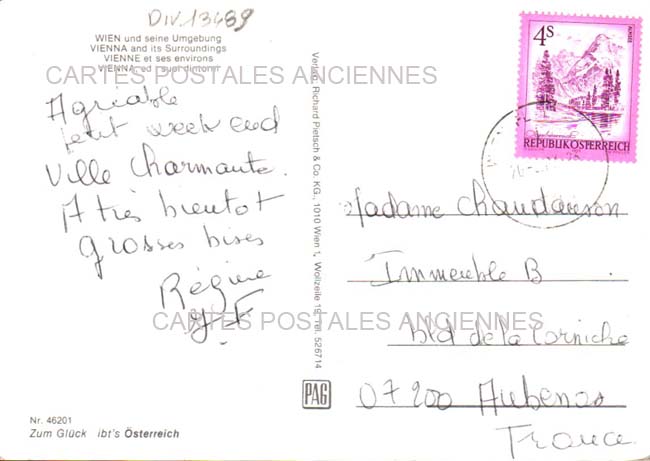 DIV.13489
WIEN und seine Umgebung
VIENNA and its Surroundings
VIENNE et ses environs
VIENNA, ed i suoi dintorni
CARTES POSTALES ANCIENNES
Agréable
petit week end
Ville Charmante.
A très bientot
grosses bises
Régine
J-F
CARTES POSTALES ANCIENNES
Verlag Richard Pietsch & Co. KG., 1010 Wien 1, Wollzeile 19, Tel. 526714
PAG
Nr. 46201
Zum Glück ibt's Österreich
4S
ALMSEE
REPUBLIK ÖSTERREICH
Madame
Immeuble B
Bld de la Corniche
07200 Aubenas
France